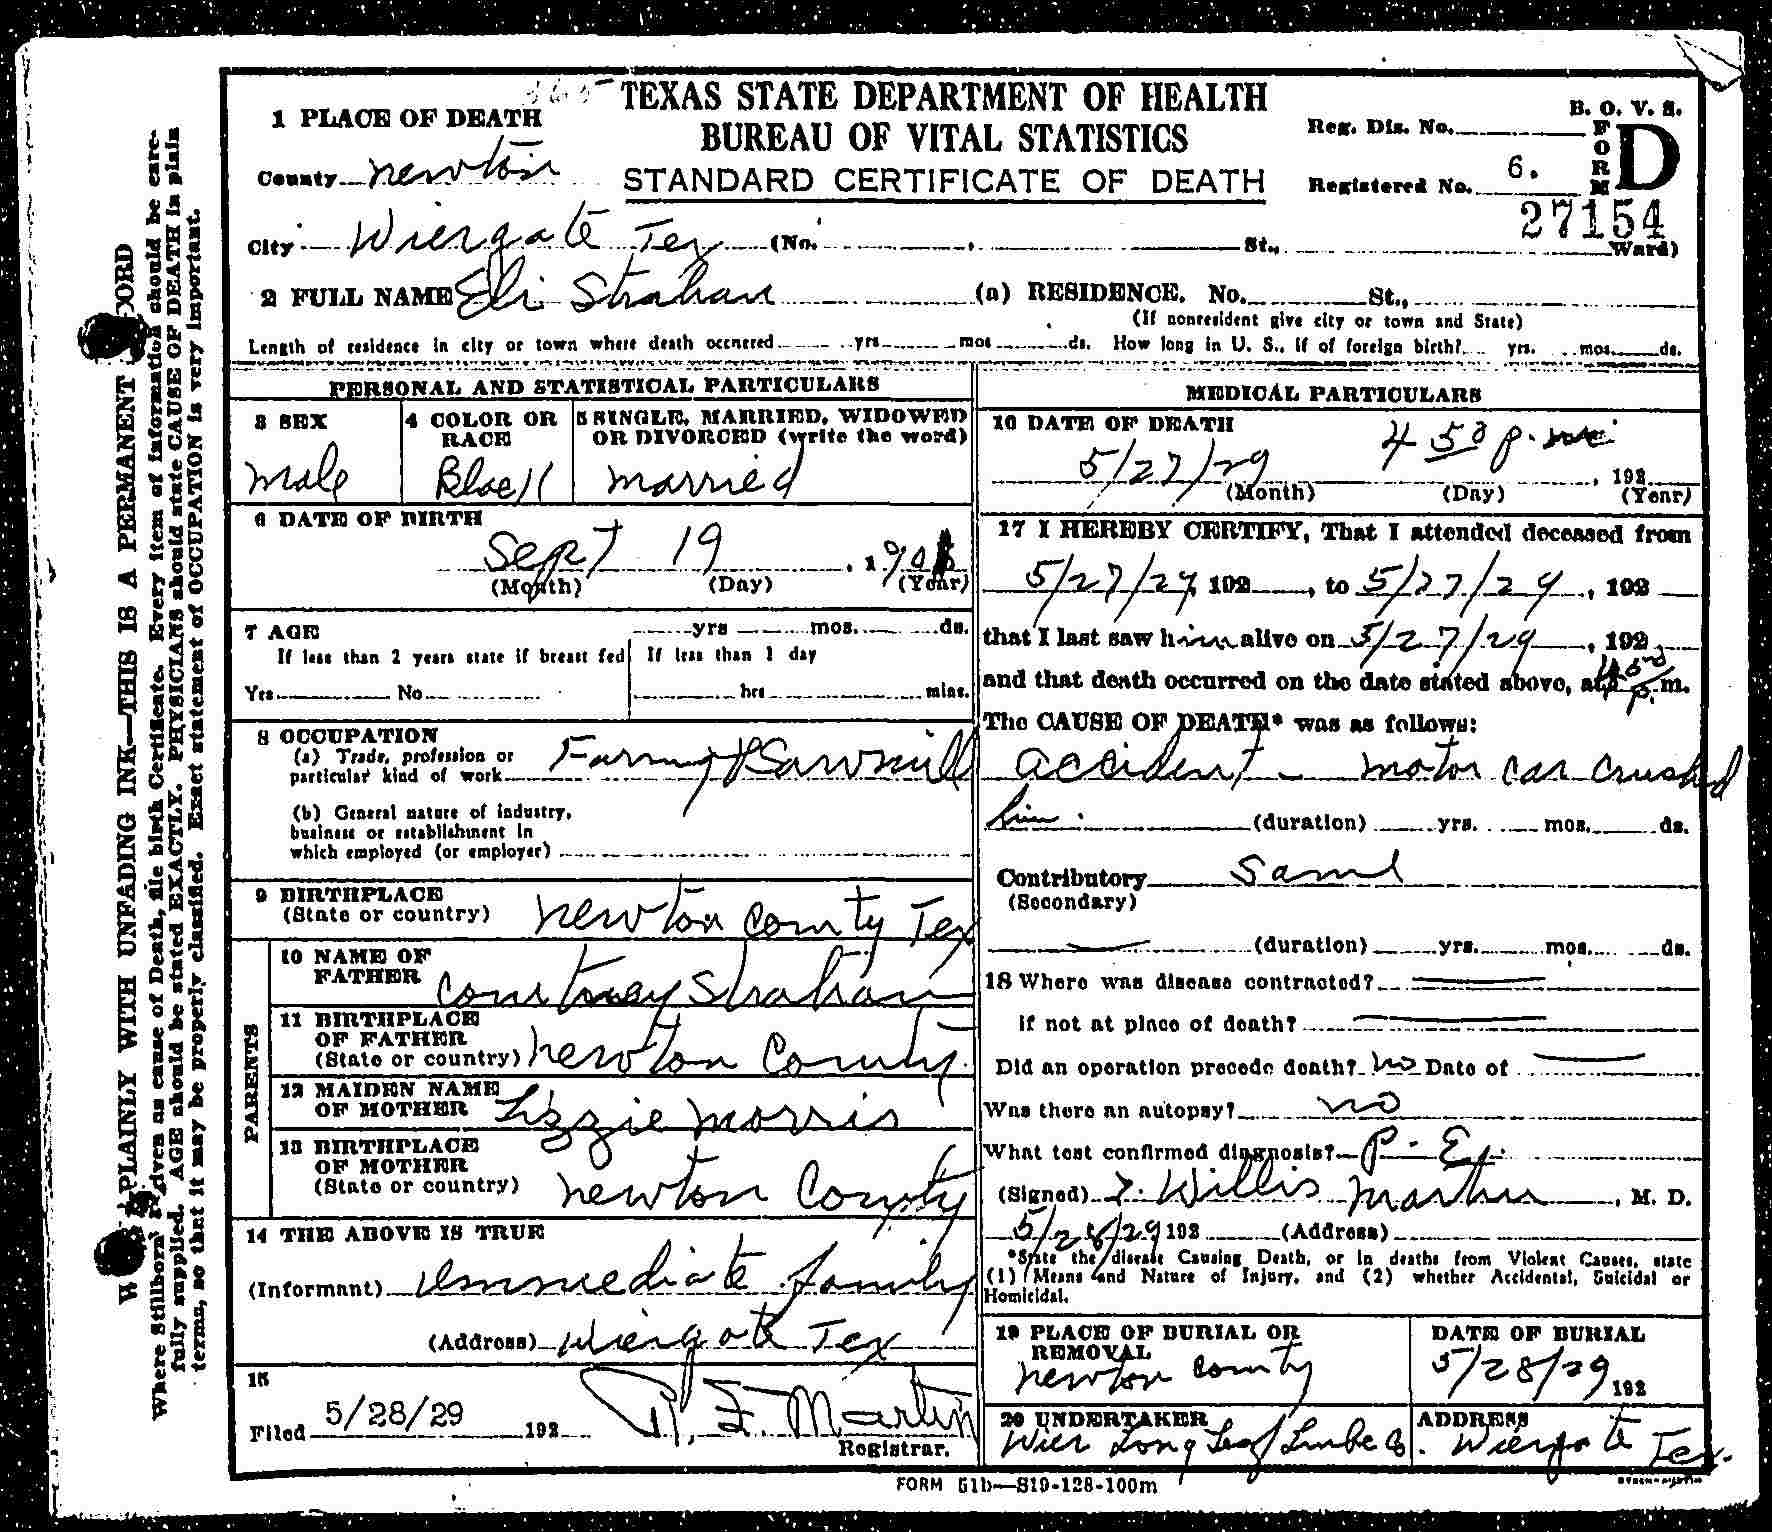 TEXAS STATE DEPARTMENT OF HEALTH
BUREAU OF VITAL STATISTICS
STANDARD CERTIFICATE OF DEATH
B. O. V. S.
FORM D
Reg. Dis. No.
Registered No. 6.
27154
1 PLACE OF DEATH
County Newton
City Wiergate Tex (No. St., Ward)
2 FULL NAME Eli Strahan (a) RESIDENCE. No. St.,
(If nonresident give city or town and State)
Length of residence in city or town where death occurred yrs. mos. ds. How long in U. S., if of foreign birth? yrs. mos. ds.
PERSONAL AND STATISTICAL PARTICULARS
3 SEX
Male
4 COLOR OR RACE
Black
5 SINGLE, MARRIED, WIDOWED
OR DIVORCED (write the word)
Married
6 DATE OF BIRTH
Sept 19, 190
(Month) (Day) (Year)
7 AGE yrs mos. ds.
If less than 2 years state if breast fed
Yrs No
If less than 1 day
hrs mins.
8 OCCUPATION
(a) Trade, profession or
particular kind of work Farming & Sawmill
(b) General nature of industry,
business or establishment in
which employed (or employer)
9 BIRTHPLACE
(State or country) Newton County Tex
PARENTS
10 NAME OF
FATHER Courtney Strahan
11 BIRTHPLACE
OF FATHER
(State or country) Newton County
12 MAIDEN NAME
OF MOTHER Lizzie Morris
13 BIRTHPLACE
OF MOTHER
(State or country) Newton County
14 THE ABOVE IS TRUE
(Informant) Immediate family
(Address) Wiergate Tex
15
Filed 5/28/29 192
R. F. Martin
Registrar.
MEDICAL PARTICULARS
16 DATE OF DEATH 4 50 p.m.
5/27/29, 192
(Month) (Day) (Year)
17 I HEREBY CERTIFY, That I attended deceased from
5/27/29, 192, to 5/27/29, 192
that I last saw him alive on 5/27/29, 192
and that death occurred on the date stated above, at 4 50 p. m.
The CAUSE OF DEATH* was as follows:
Accident - motor car crushed
him. (duration) yrs. mos. ds.
Contributory Same
(Secondary)
(duration) yrs. mos. ds.
18 Where was disease contracted?
If not at place of death?
Did an operation precede death? No Date of
Was there an autopsy? no
What test confirmed diagnosis? P. E.
(Signed) Willis M. D.
5/28/29 192 (Address)
*State the disease Causing Death, or in deaths from Violent Causes, state
(1) Means and Nature of Injury, and (2) whether Accidental, Suicidal or
Homicidal.
19 PLACE OF BURIAL OR
REMOVAL
Newton County
DATE OF BURIAL
5/28/29 192
20 UNDERTAKER
Wier Long Leaf Lumbe Co.
ADDRESS
Wiergate Tex.
FORM 51b—S19-128-100m
PLAINLY WITH UNFADING INK—THIS IS A PERMANENT
Where Stillborn is given as cause of Death, file birth Certificate. Every item of information should be care-
fully supplied. AGE should be stated EXACTLY. PHYSICIANS should state CAUSE OF DEATH in plain
terms, so that it may be properly classified. Exact statement of OCCUPATION is very important.